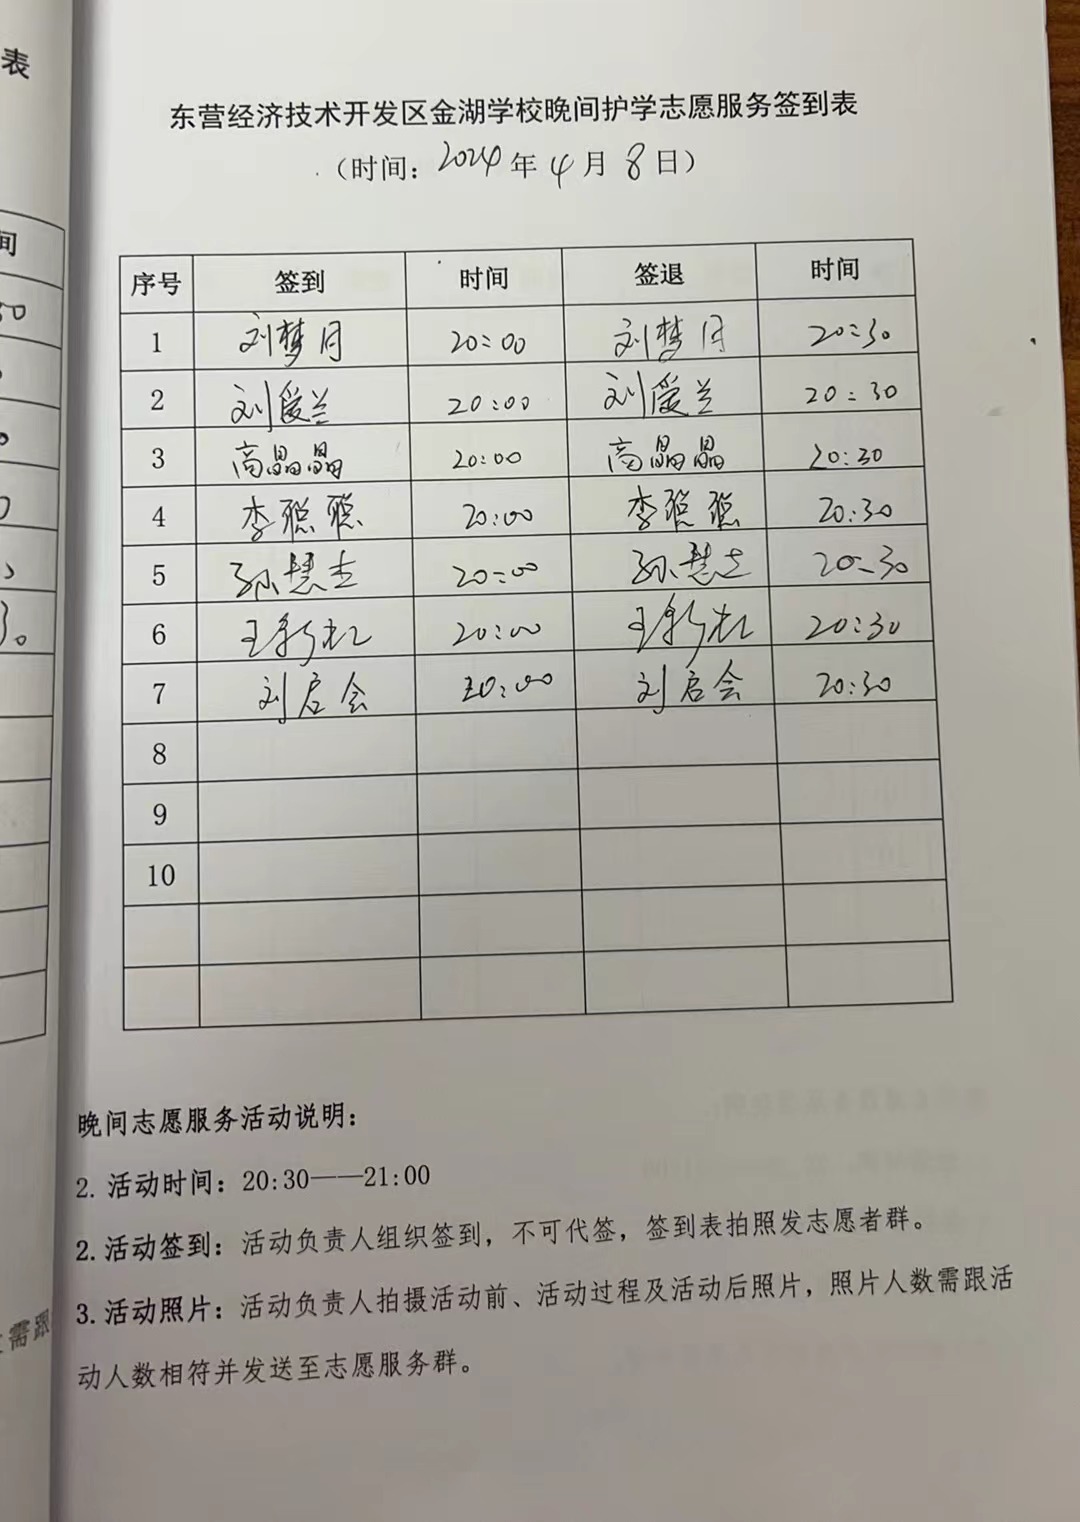 表
东营经济技术开发区金湖学校晚间护学志愿服务签到表
（时间：2024年4月8日）
间
序号 签到 时间 签退 时间
1 刘梦月 20:00 刘梦月 20:30
2 刘爱兰 20:00 刘爱兰 20:30
3 高晶晶 20:00 高晶晶 20:30
4 李聪聪 20:00 李聪聪 20:30
5 孙慧志 20:00 孙慧志 20:30
6 王新 20:00 王新 20:30
7 刘启会 20:00 刘启会 20:30
8
9
10
晚间志愿服务活动说明：
2. 活动时间：20:30——21:00
2. 活动签到：活动负责人组织签到，不可代签，签到表拍照发志愿者群。
3. 活动照片：活动负责人拍摄活动前、活动过程及活动后照片，照片人数需跟活
需跟
动人数相符并发送至志愿服务群。